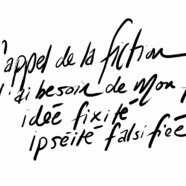 l'appel de la fiction
j'ai besoin de mon
idée fixité
ipséité falsifiée